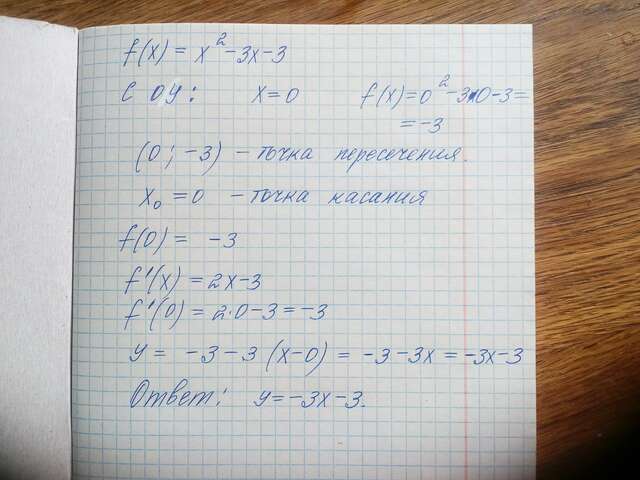 f(x) = x² - 3x - 3
С ОУ: x = 0 f(x) = 0² - 3·0 - 3 =
= -3
(0; -3) - точка пересечения.
x₀ = 0 - точка касания
f(0) = -3
f'(x) = 2x - 3
f'(0) = 2·0 - 3 = -3
y = -3 - 3 (x - 0) = -3 - 3x = -3x - 3
Ответ: y = -3x - 3.